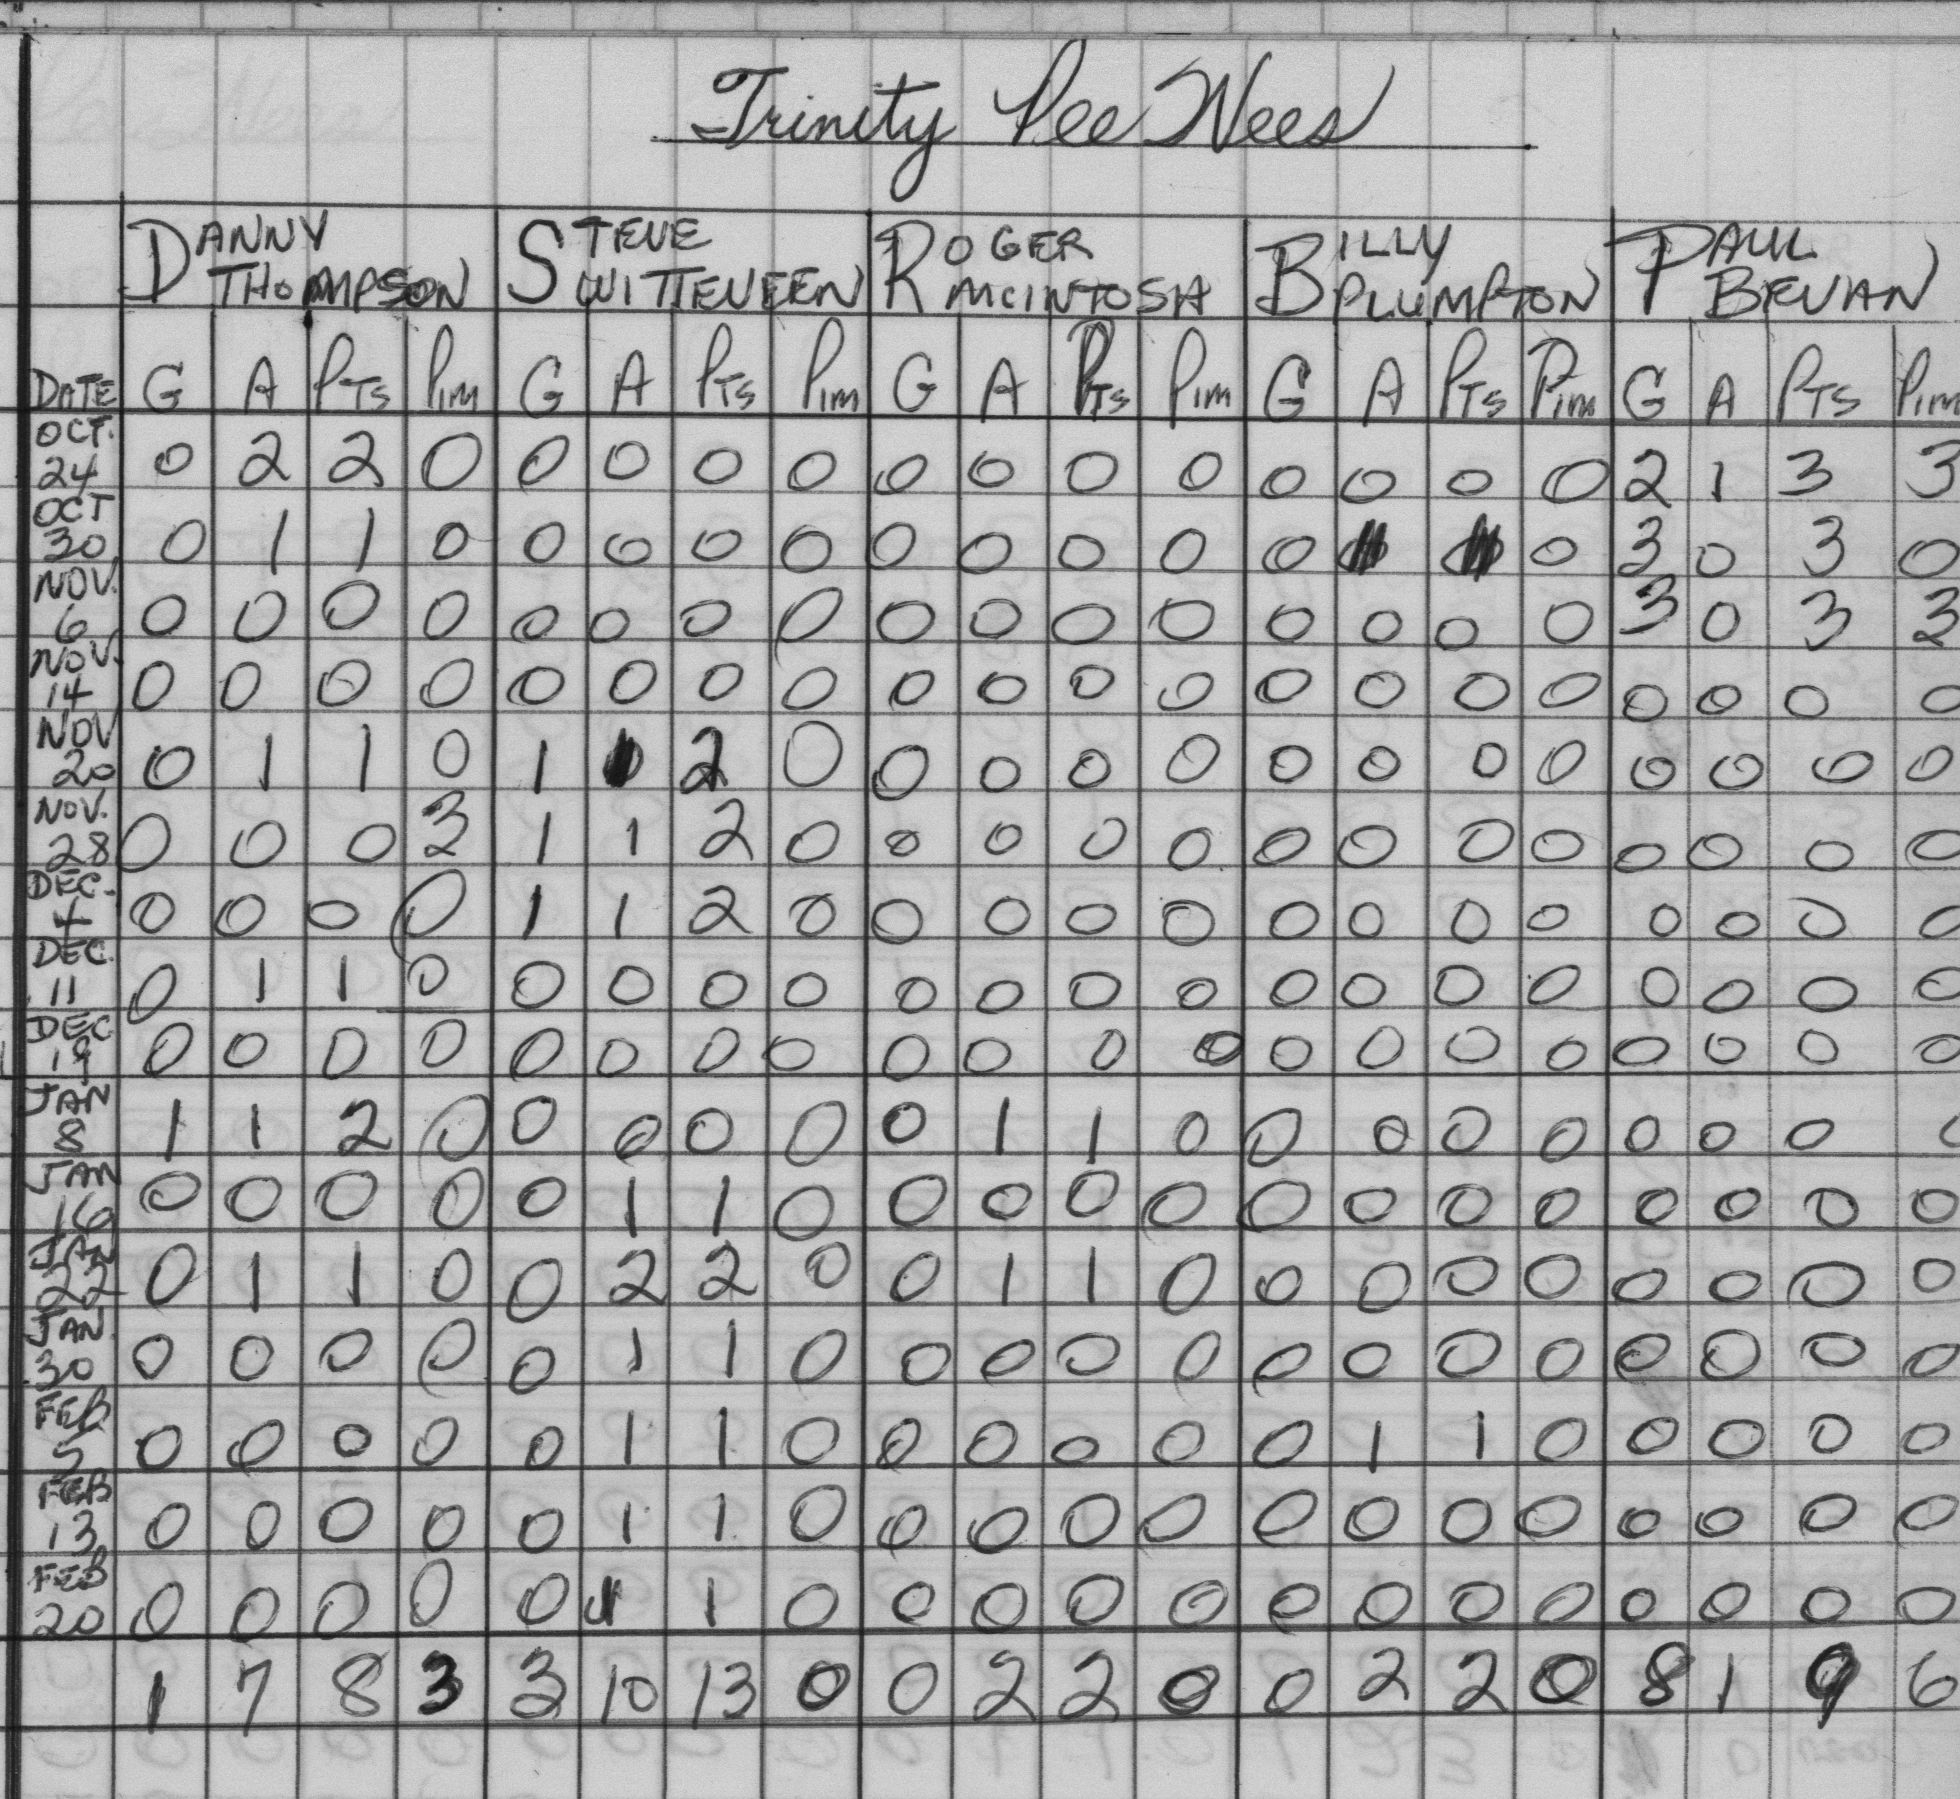 Trinity Pee Wees
DANNY THOMPSON STEVE WITTEVEEN ROGER MCINTOSH BILLY PLUMPTON PAUL BEVAN
DATE G A PTS PIM G A PTS PIM G A PTS PIM G A PTS PIM G A PTS PIM
OCT. 24 0 2 2 0 0 0 0 0 0 0 0 0 0 0 0 0 2 1 3 3
OCT 30 0 1 1 0 0 0 0 0 0 0 0 0 0 0 3 0 3 0
NOV. 6 0 0 0 0 0 0 0 0 0 0 0 0 0 0 0 0 3 0 3 3
NOV. 14 0 0 0 0 0 0 0 0 0 0 0 0 0 0 0 0 0 0 0 0
NOV 20 0 1 1 0 1 2 0 0 0 0 0 0 0 0 0 0 0 0 0
NOV. 28 0 0 0 3 1 1 2 0 0 0 0 0 0 0 0 0 0 0 0 0
DEC. 4 0 0 0 0 1 1 2 0 0 0 0 0 0 0 0 0 0 0 0 0
DEC. 11 0 1 1 0 0 0 0 0 0 0 0 0 0 0 0 0 0 0 0 0
DEC 19 0 0 0 0 0 0 0 0 0 0 0 0 0 0 0 0 0 0 0 0
JAN 8 1 1 2 0 0 0 0 0 0 1 1 0 0 0 0 0 0 0 0 0
JAN 16 0 0 0 0 0 1 1 0 0 0 0 0 0 0 0 0 0 0 0 0
JAN 22 0 1 1 0 0 2 2 0 0 1 1 0 0 0 0 0 0 0 0 0
JAN. 30 0 0 0 0 0 1 1 0 0 0 0 0 0 0 0 0 0 0 0 0
FEB 5 0 0 0 0 0 1 1 0 0 0 0 0 0 1 1 0 0 0 0 0
FEB 13 0 0 0 0 0 1 1 0 0 0 0 0 0 0 0 0 0 0 0 0
FEB 20 0 0 0 0 0 1 1 0 0 0 0 0 0 0 0 0 0 0 0 0
1 7 8 3 3 10 13 0 0 2 2 0 0 2 2 0 8 1 9 6